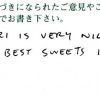 づきになられたご意見やこ
でお書き下さい。
RI IS VERY NIC
BEST SWEETS I